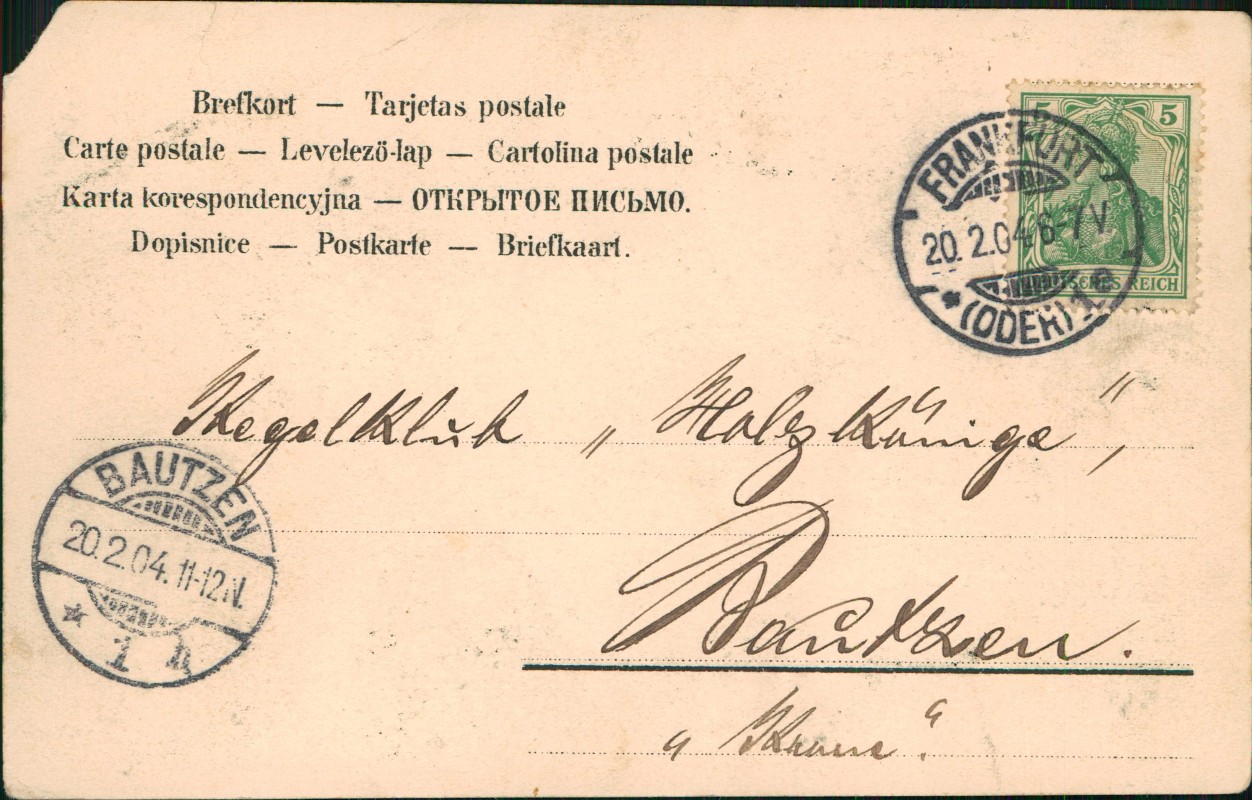 Brefkort — Tarjetas postale
Carte postale — Levelező-lap — Cartolina postale
Karta korespondencyjna — ОТКРЫТОЕ ПИСЬМО.
Dopisnice — Postkarte — Briefkaart.
5 5
DEUTSCHES REICH
FRANKFURT
20. 2.04.6-7V
* (ODER) 1e
Kegelklub „Holzkönige",
Bautzen.
BAUTZEN
20.2.04. 11-12N.
* 1 h
„Krone".